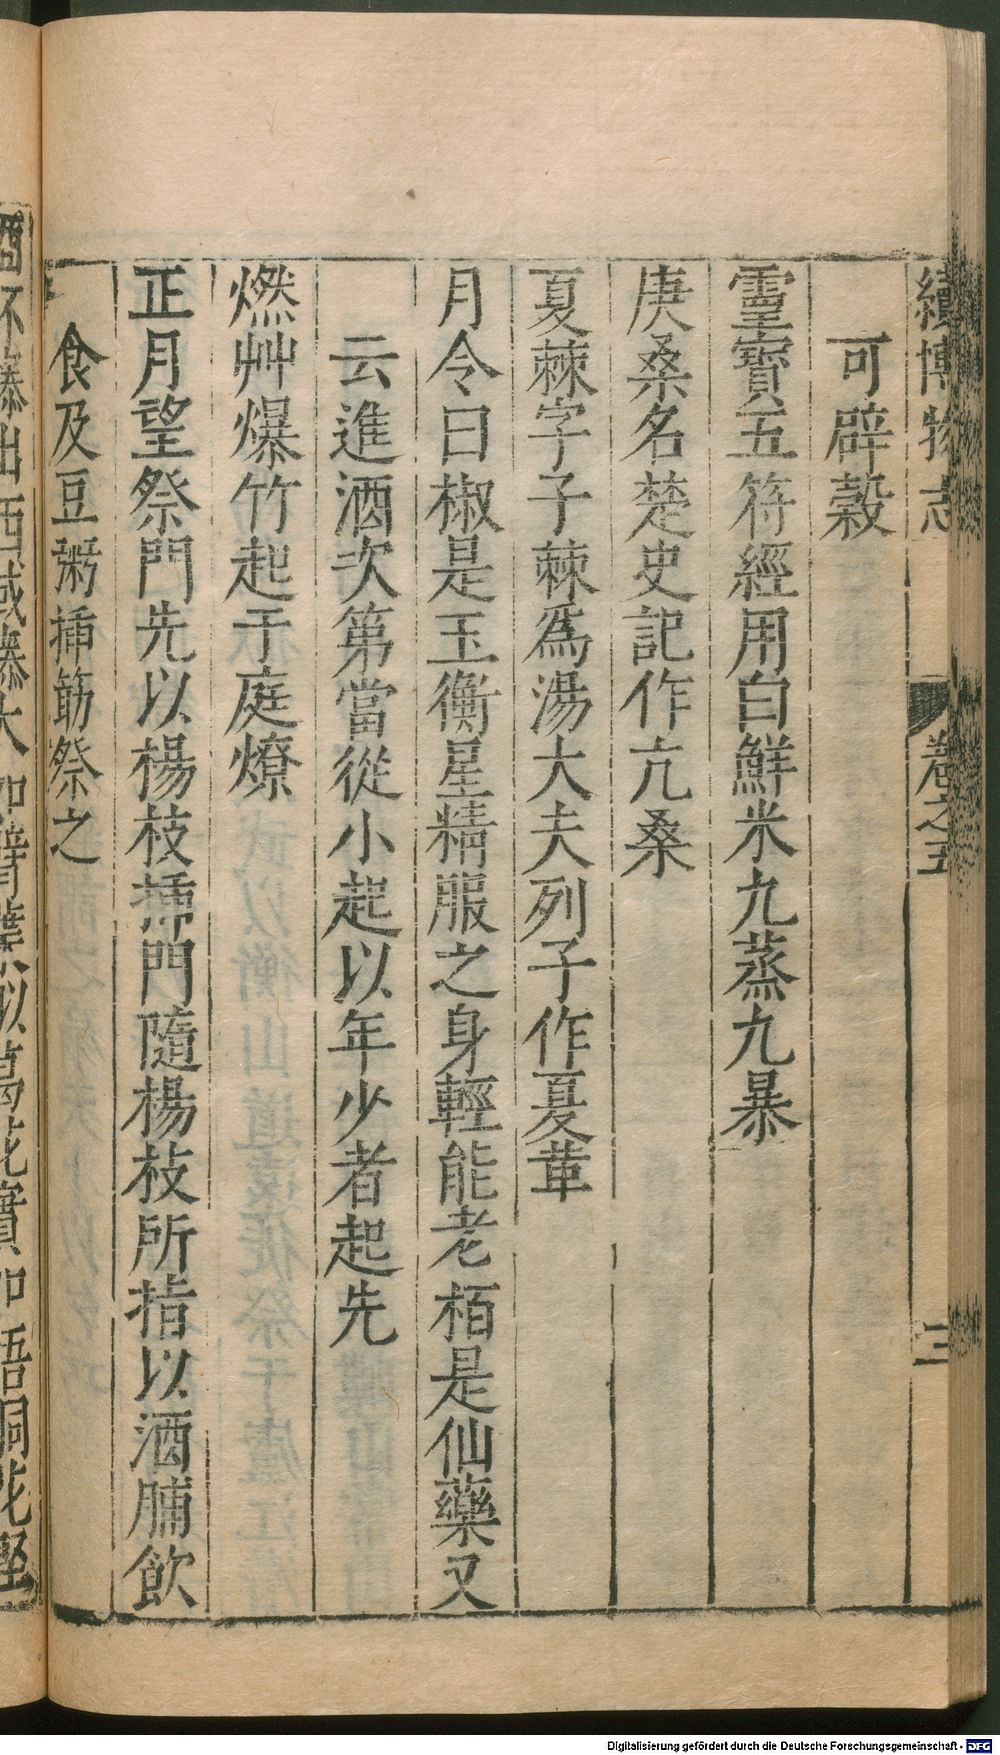 續博物志 卷之五 三
可辟穀
靈寶五符經用白鮮米九蒸九暴
庚桑名楚史記作亢桑
夏棘字子棘爲湯大夫列子作夏革
月令曰椒是玉衡星精服之身輕能老栢是仙藥又
云進酒次第當從小起以年少者起先
燃艸爆竹起于庭燎
正月望祭門先以楊枝揷門隨楊枝所指以酒脯飲
食及豆粥揷筯祭之
出西域 大如 葉似葛花實如梧桐花堅
Digitalisierung gefördert durch die Deutsche Forschungsgemeinschaft - DFG